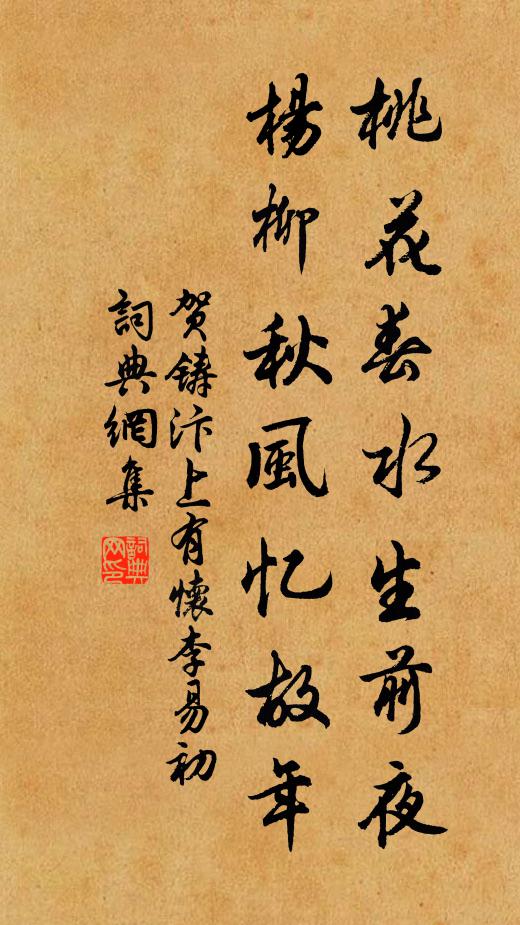 桃花春水生前夜
楊柳秋風忆故年
贺鑄汴上有懷李易初
詞典網集
詞典网印